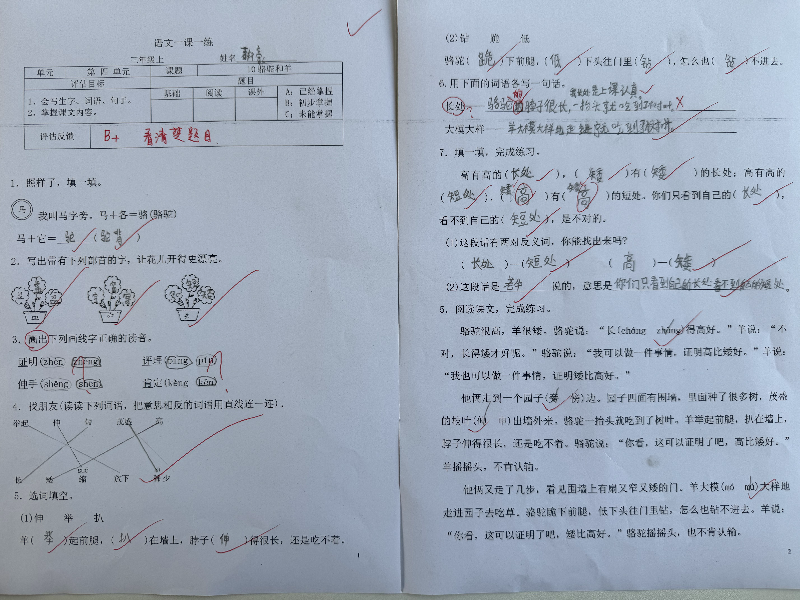 语文一课一练
二年级上 姓名
单元 第四单元 课题 10 骆驼和羊
评估目标 题目
基础 阅读 课外 A：已经掌握
1．会写生字、词语、句子。 B：初步掌握
2．掌握课文内容。 C：未能掌握
评估反馈 B+ 看清楚题目
1．照样子，填一填。
我叫马字旁。马＋各＝骆(骆驼)
马＋它＝ 驼 ( )
2．写出带有下列部首的字，让花儿开得更漂亮。
3．圈出下列画线字正确的读音。
证明(zhèn zhèng) 评理(píng pín)
伸手(shēng shēn) 肯定(kěng kěn)
4．找朋友(读读下列词语，把意思相反的词语用直线连一连)。
举起 伸
缩 放下 稀少
5．选词填空。
(1)伸 举 扒
羊( 举 )起前腿，( 扒 )在墙上，脖子( 伸 )得很长，还是吃不着。
1
(2)钻 跪 低
骆驼( 跪 )下前腿，( 低 )下头往门里( 钻 )，怎么也( 钻 )不进去。
6．用下面的词语各写一句话。
是上课认真。
长处： 骆驼的脖子很长，一抬头就吃到了树叶。
大模大样 羊大模大样地走
7．填一填，完成练习。
高有高的( 长处 )，( 矮 )有( 矮 )的长处；高有高的
( 短处 )，( 高 )有( 高 )的短处。你们只看到自己的( 长处 )，
看不到自己的( 短处 )，是不对的。
(1)这段话有两对反义词，你能找出来吗？
( 长处 )—( 短处 ) ( 高 )—( 矮 )
(2)这段单是 老牛 说的，意思是 你们只看到自己的长处看不到自己的短处。
8．阅读课文，完成练习。
骆驼很高，羊很矮。骆驼说：“长(cháng zhǎng)得高好。”羊说：“不
对，长得矮才好呢。”骆驼说：“我可以做一件事情，证明高比矮好。”羊说：
“我也可以做一件事情，证明矮比高好。”
他俩走到一个园子(旁 傍)边。园子四面有围墙，里面种了很多树，茂盛
的枝叶(伸 申)出墙外来，骆驼一抬头就吃到了树叶。羊举起前腿，扒在墙上，
脖子伸得很长，还是吃不着。骆驼说：“你看，这可以证明了吧，高比矮好。”
羊摇摇头，不肯认输。
他俩又走了几步，看见围墙上有扇又窄又矮的门。羊大模(mó mú)大样地
走进园子去吃草。骆驼跪下前腿，低下头往门里钻，怎么也钻不进去。羊说：
“你看，这可以证明了吧，矮比高好。”骆驼摇摇头，也不肯认输。
2